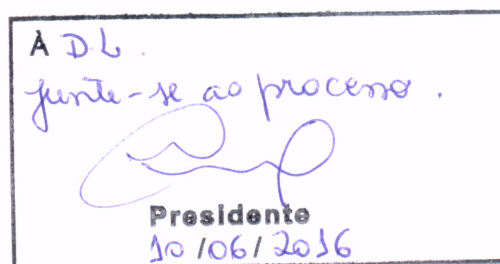 À D.L.
Junte-se ao processo.
Presidente
10/06/2016